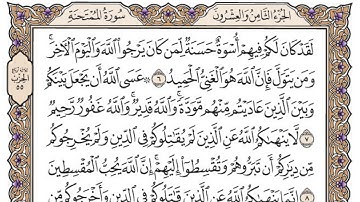 الجُزْءُ الثَّامِنُ وَالعِشْرُونَ
سُورَةُ المُمْتَحنَةِ
لَقَدْ كَانَ لَكُمْ فِيهِمْ أُسْوَةٌ حَسَنَةٌ لِّمَن كَانَ يَرْجُوا۟ ٱللَّهَ وَٱلْيَوْمَ ٱلْـَٔاخِرَۚ
وَمَن يَتَوَلَّ فَإِنَّ ٱللَّهَ هُوَ ٱلْغَنِىُّ ٱلْحَمِيدُ ٦ ۞ عَسَى ٱللَّهُ أَن يَجْعَلَ بَيْنَكُمْ
وَبَيْنَ ٱلَّذِينَ عَادَيْتُم مِّنْهُم مَّوَدَّةًۚ وَٱللَّهُ قَدِيرٌۚ وَٱللَّهُ غَفُورٌ رَّحِيمٌ
٧ لَّا يَنْهَىٰكُمُ ٱللَّهُ عَنِ ٱلَّذِينَ لَمْ يُقَـٰتِلُوكُمْ فِى ٱلدِّينِ وَلَمْ يُخْرِجُوكُم
مِّن دِيَـٰرِكُمْ أَن تَبَرُّوهُمْ وَتُقْسِطُوٓا۟ إِلَيْهِمْۚ إِنَّ ٱللَّهَ يُحِبُّ ٱلْمُقْسِطِينَ
٨ إِنَّمَا يَنْهَىٰكُمُ ٱللَّهُ عَنِ ٱلَّذِينَ قَـٰتَلُوكُمْ فِى ٱلدِّينِ وَأَخْرَجُوكُم
الحزب
٥٥